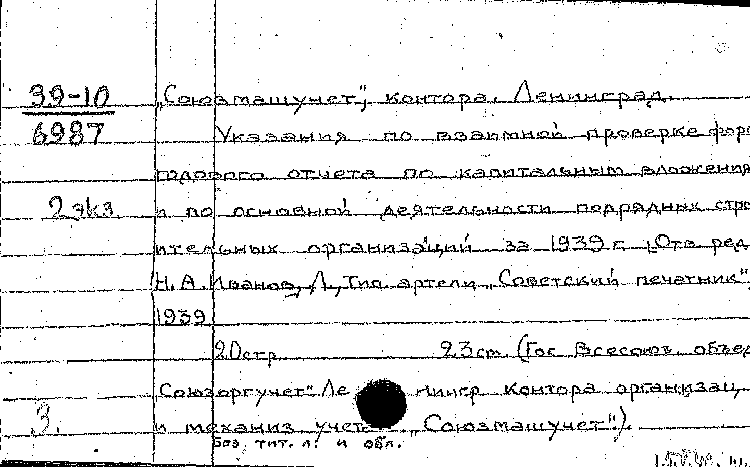 39-10 „Союзмашучет", контора. Ленинград.
6987 Указания по взаимной проверке форм
годового отчета по капитальным вложения
2 экз и по основной деятельности подрядных стро
ительных организаций за 1939 г. (Отв ред
Н. А. Иванов, Л., Тип. артели „Советский печатник",
1939
20стр. 23см. (Гос Всесоюз. объед
Союзоргучет" Ле нингр контора организац.
3. и механиз учет „Союзмашучет").
Без тит. л. и обл.